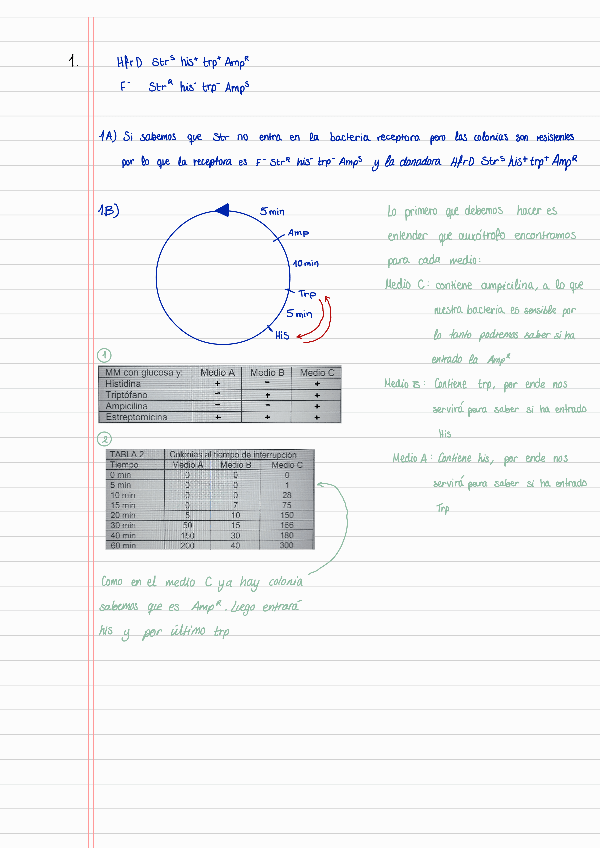 1.
HfrD Strˢ his⁺ trp⁺ Ampᴿ
F⁻ Strᴿ his⁻ trp⁻ Ampˢ
1A) Si sabemos que Str no entra en la bacteria receptora pero las colonias son resistentes
por lo que la receptora es F⁻ Strᴿ his⁻ trp⁻ Ampˢ y la donadora HfrD Strˢ his⁺ trp⁺ Ampᴿ
1B)
5 min
Amp
10 min
Trp
5 min
His
Lo primero que debemos hacer es
entender que auxótrofo encontramos
para cada medio:
Medio C: contiene ampicilina, a lo que
nuestra bacteria es sensible por
lo tanto podremos saber si ha
entrado la Ampᴿ
Medio B: Contiene trp, por ende nos
servirá para saber si ha entrado
His
Medio A: Contiene his, por ende nos
servirá para saber si ha entrado
Trp
1
MM con glucosa y: Medio A Medio B Medio C
Histidina + - +
Triptófano - + +
Ampicilina - - +
Estreptomicina + + +
2
TABLA 2 Colonias al tiempo de interrupción
Tiempo Medio A Medio B Medio C
0 min 0 0 0
5 min 0 0 1
10 min 0 0 28
15 min 0 7 75
20 min 5 10 150
30 min 50 15 166
40 min 150 30 180
60 min 200 40 300
Como en el medio C ya hay colonia
sabemos que es Ampᴿ. Luego entrará
his y por último trp